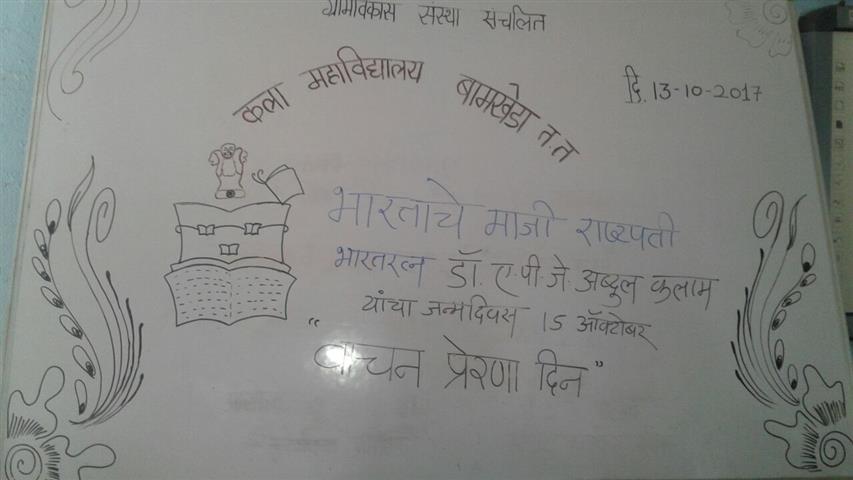 ग्रामविकास संस्था संचलित
कला महाविद्यालय बामखेडा त.त
दि. 13-10-2017
भारताचे माजी राष्ट्रपती
भारतरत्न डॉ. ए.पी.जे. अब्दुल कलाम
यांचा जन्मदिवस 15 ऑक्टोबर
"वाचन प्रेरणा दिन"